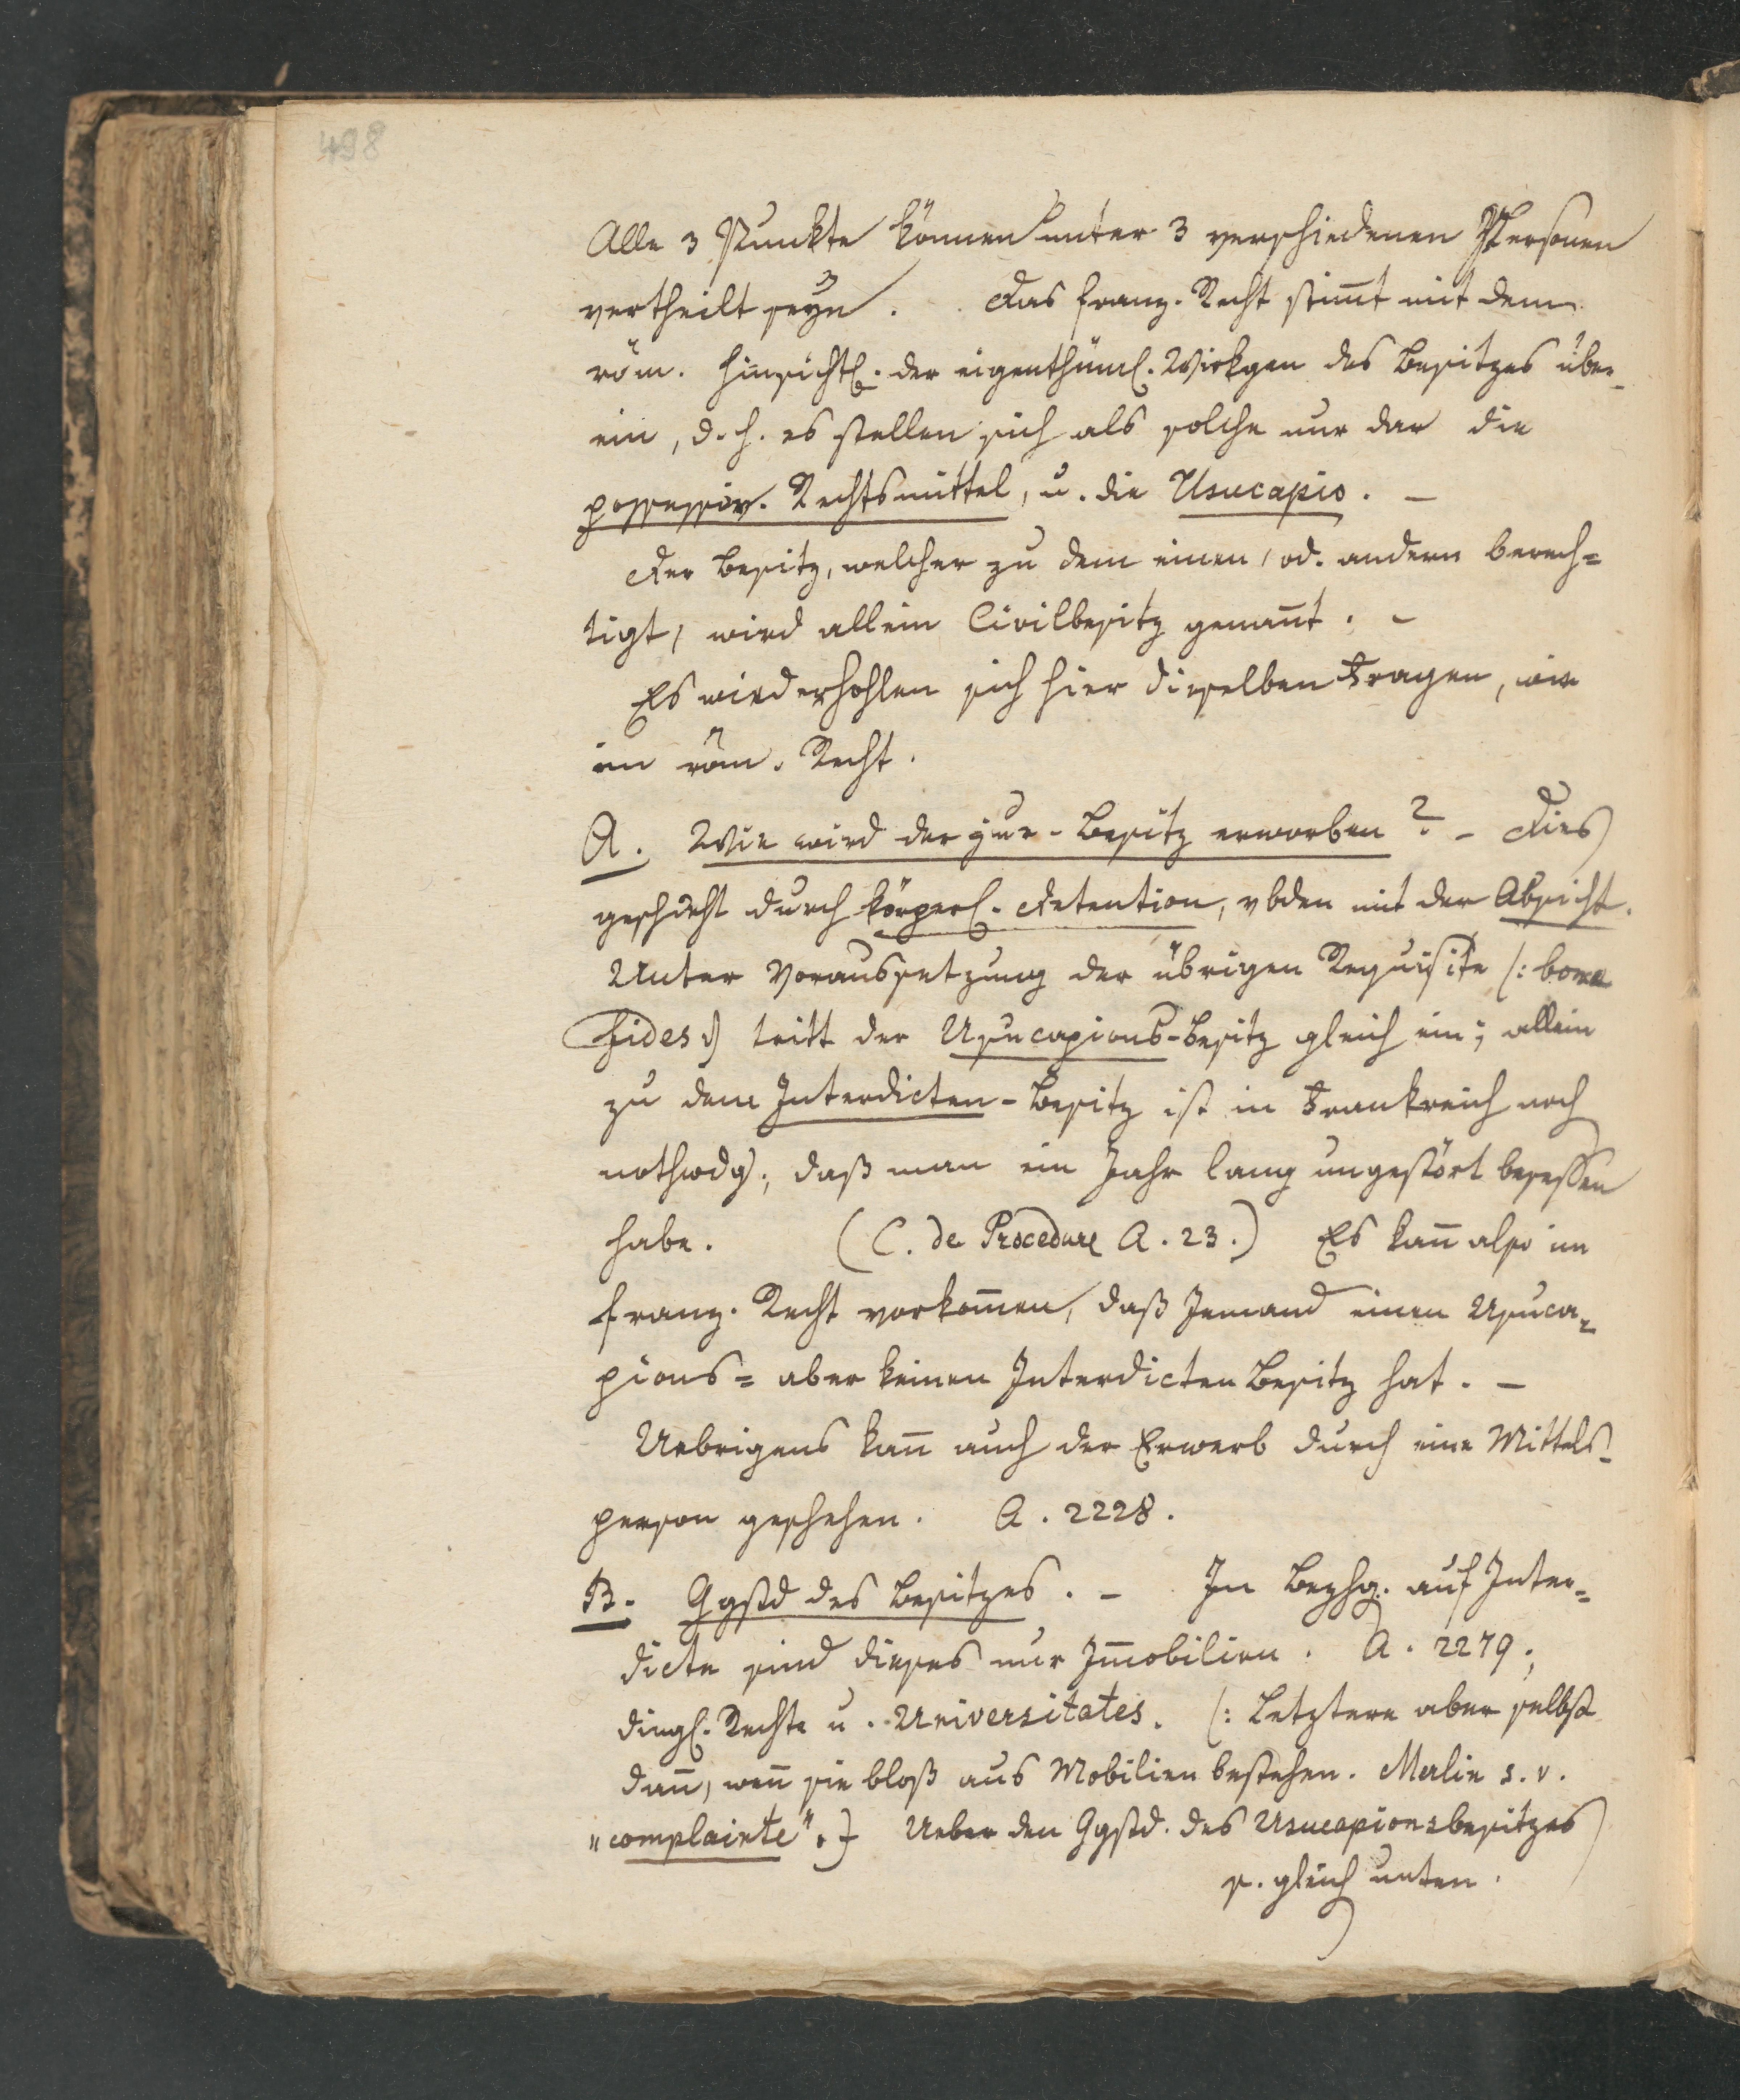 498
Alle 3 Punkte können unter 3 verschiedenen Personen
vertheilt seyn. Das franz. Recht stim̄t mit dem
röm. hinsichtl. der eigenthüml. Wirkgen des Besitzes über-
ein, d. h. es stellen sich als solche nur dar die
possessor. Rechtsmittel, u. die Usucapio. –
Der Besitz, welcher zu dem einen, od. andern berech=
tigt, wird allein Civilbesitz genan̄t. –
Es wiederhohlen sich hier dieselben Fragen, wie
im röm. Recht.
A. Wie wird der jur. Besitz erworben? – Dies
geschieht durch körperl. Detention, vbden mit der Absicht.
Unter Voraussetzung der übrigen Requisite (: bona
fides :) tritt der Usucapions-Besitz gleich ein; allein
zu dem Interdicten-Besitz ist in Frankreich noch
nothwdg., daß man ein Jahr lang ungestört besessen
habe. (C. de Procedure A. 23.) Es kan̄ also im
franz. Recht vorkom̄en, daß Jemand einen Usuca-
pions= aber keinen Interdicten Besitz hat. –
Uebrigens kan̄ auch der Erwerb durch eine Mittels-
person geschehen. A. 2228.
B. Ggstd des Besitzes. – In Bezhg. auf Inter=
dicte sind dieses nur Im̄obilien. A. 2279.,
dingl. Rechte u. Universitates. (: Letztere aber selbst
dan̄, wen̄ sie bloß aus Mobilien bestehen. Merlin s. v.
"complainte". :) Ueber den Ggstd. des Usucapionsbesitzes
s. gleich unten.